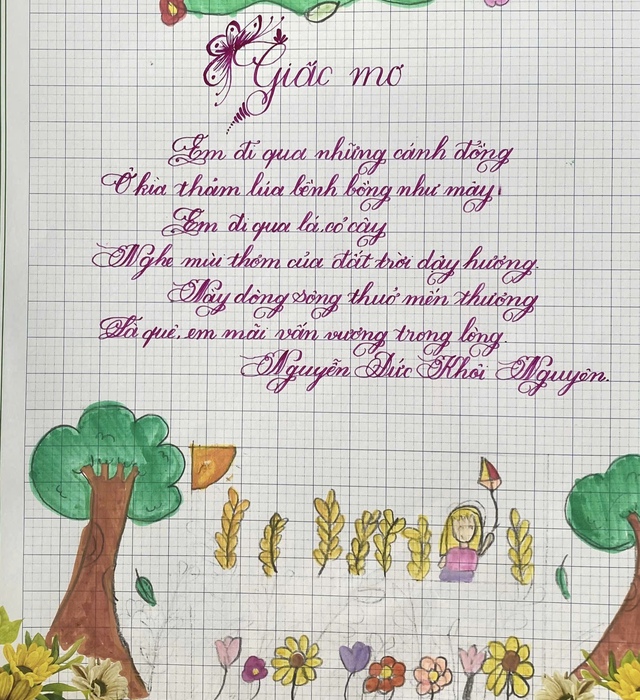 Giấc mơ
Em đi qua những cánh đồng
Ô kìa thảm lúa bềnh bồng như mây
Em đi qua lá, cỏ cây
Nghe mùi thơm của đất trời dậy hương.
Này dòng sông thuở mến thương
Là quê, em mãi vấn vương trong lòng.
Nguyễn Đức Khôi Nguyên.